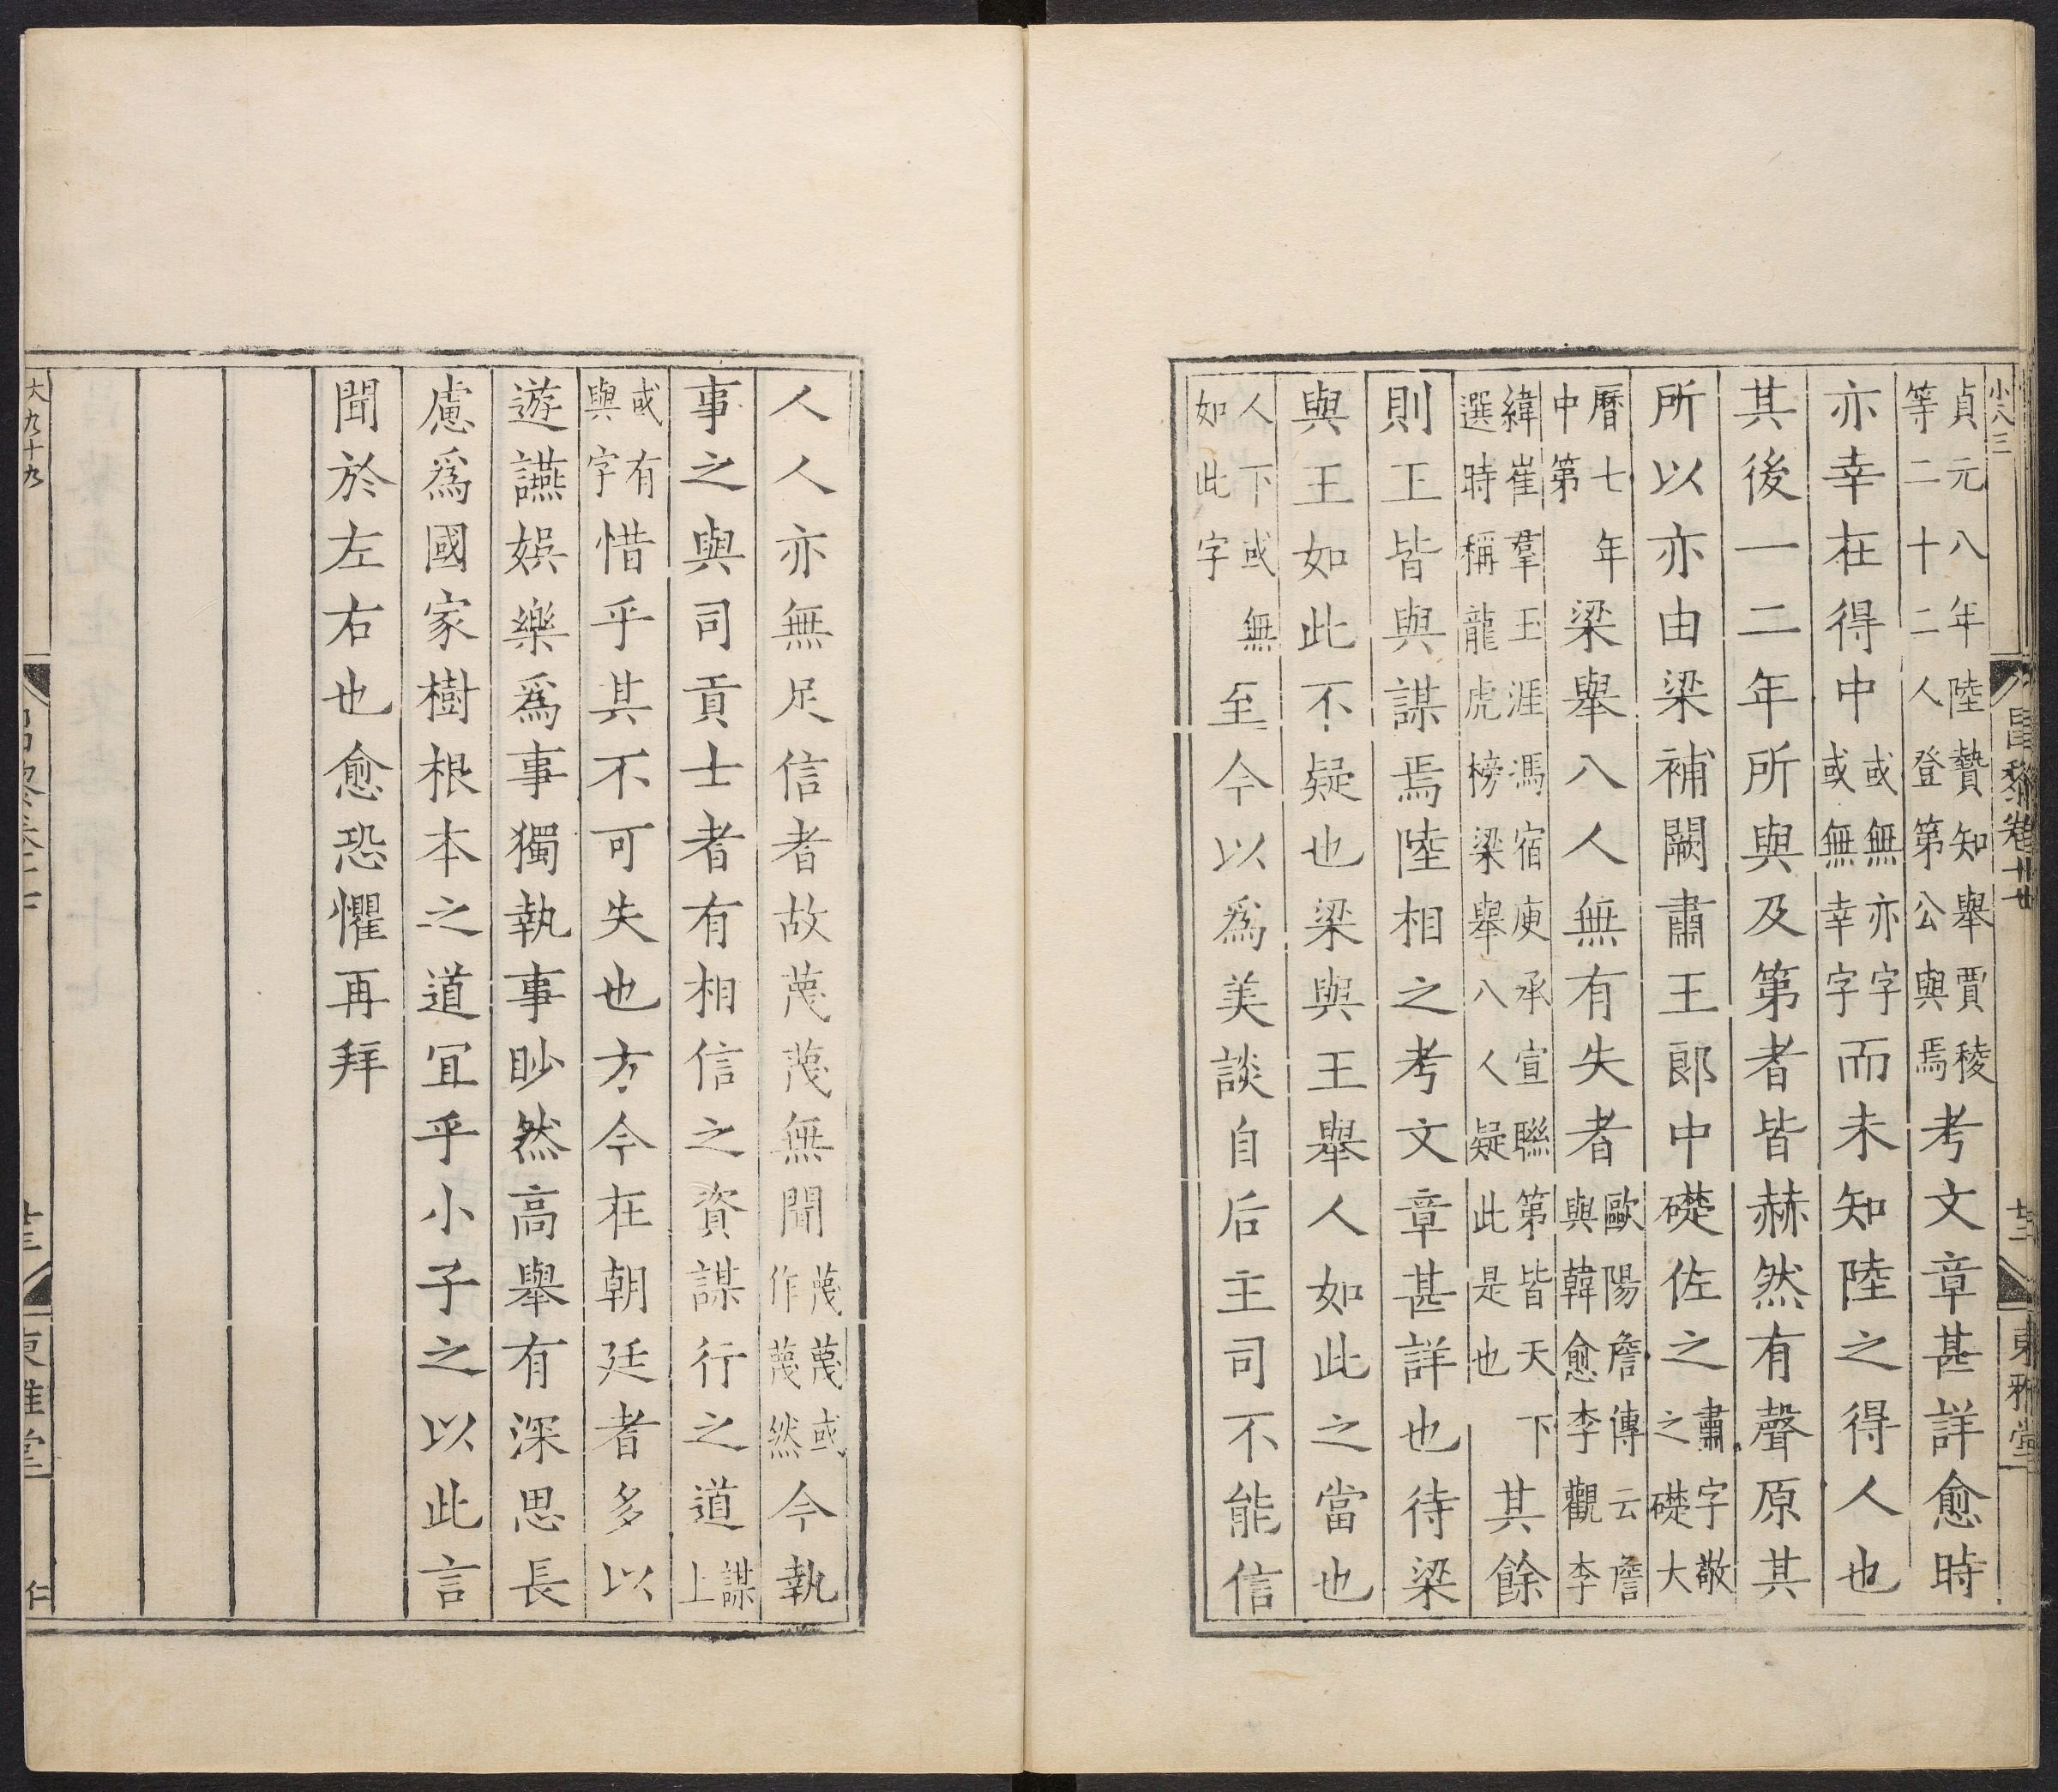 小八三
昌黎卷十七
廿三
東雅堂
貞元八年陸贄知舉賈稜等二十二人登第公與焉考文章甚詳愈時
亦幸在得中或無亦字或無幸字而未知陸之得人也
其後一二年所與及第者皆赫然有聲原其
所以亦由梁補闕肅王郎中礎佐之肅字敬之礎大
曆七年中第梁舉八人無有失者歐陽詹傳云詹與韓愈李觀李
緯崔羣王涯馮宿庾承宣聯第皆天下選時稱龍虎榜梁舉八人疑此是也其餘
則王皆與謀焉陸相之考文章甚詳也待梁
與王如此不疑也梁與王舉人如此之當也
人下或無如此字至今以爲美談自后主司不能信
人人亦無足信者故蔑蔑無聞蔑蔑或作蔑然今執
事之與司貢士者有相信之資謀行之道謀上
或有與字惜乎其不可失也方今在朝廷者多以
遊讌娛樂爲事獨執事眇然高舉有深思長
慮爲國家樹根本之道宜乎小子之以此言
聞於左右也愈恐懼再拜
大九十九
東雅堂
仁